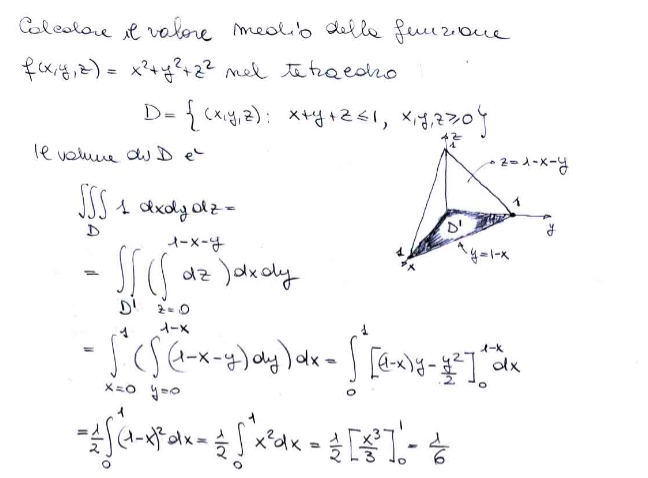 Calcolare il valore medio della funzione
f(x,y,z) = x²+y²+z² nel tetraedro
D = { (x,y,z) : x+y+z ≤ 1, x,y,z ≥ 0 }
Il volume di D è
z
1
z = 1-x-y
1
y
D'
1
x
y = 1-x
∭_D 1 dxdydz =
= ∬_{D'} ( ∫_{z=0}^{1-x-y} dz ) dxdy
= ∫_{x=0}^{1} ( ∫_{y=0}^{1-x} (1-x-y) dy ) dx = ∫_0^1 [ (1-x)y - y²/2 ]_0^{1-x} dx
= 1/2 ∫_0^1 (1-x)² dx = 1/2 ∫_0^1 x² dx = 1/2 [ x³/3 ]_0^1 = 1/6